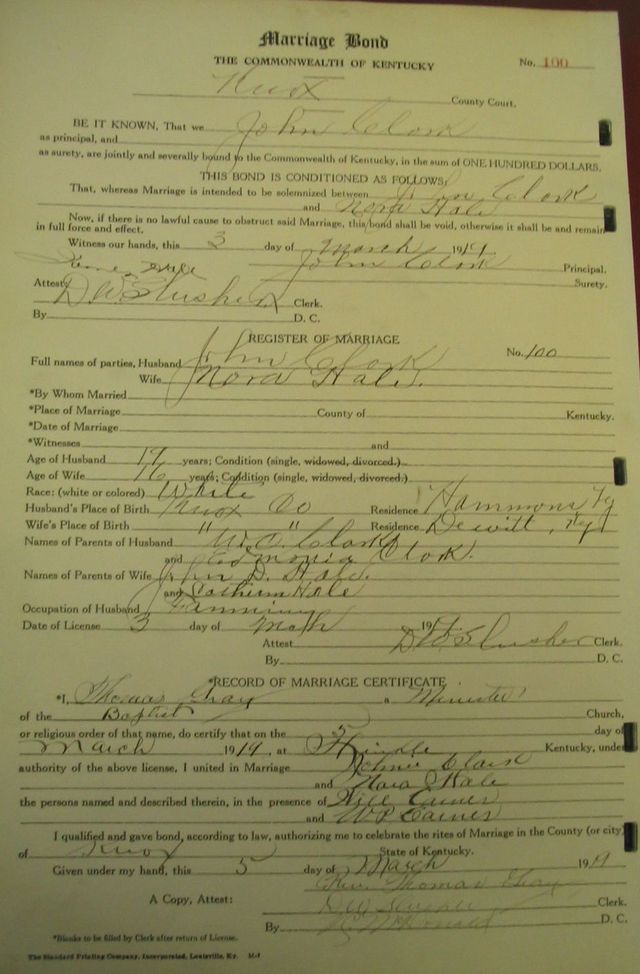 Marriage Bond
THE COMMONWEALTH OF KENTUCKY No. 100
Knox County Court.
BE IT KNOWN, That we John Clark
as principal, and
as surety, are jointly and severally bound to the Commonwealth of Kentucky, in the sum of ONE HUNDRED DOLLARS.
THIS BOND IS CONDITIONED AS FOLLOWS:
That, whereas Marriage is intended to be solemnized between John Clark
and Nora Hale
Now, if there is no lawful cause to obstruct said Marriage, this bond shall be void, otherwise it shall be and remain
in full force and effect.
Witness our hands, this 3 day of March 1919
John Clark Principal.
Surety.
Attest: D W Slusher Clerk.
By D. C.
REGISTER OF MARRIAGE
Full names of parties, Husband John Clark No. 100
Wife Nora Hale.
*By Whom Married
*Place of Marriage County of Kentucky.
*Date of Marriage
*Witnesses and
Age of Husband 19 years; Condition (single, widowed, divorced.)
Age of Wife 16 years; Condition (single, widowed, divorced.)
Race: (white or colored) White
Husband's Place of Birth Knox Co Residence Hammons Ky
Wife's Place of Birth " " Residence Dewitt, Ky
Names of Parents of Husband Clark
and Clark.
Names of Parents of Wife John D. Hale.
and Hale
Occupation of Husband Farming
Date of License 3 day of Mch 191
Attest D W Slusher Clerk.
By D. C.
*RECORD OF MARRIAGE CERTIFICATE
*I, Thomas Gray a Minister
of the Baptist Church,
or religious order of that name, do certify that on the 5 day of
March 1919, at Hinkle Kentucky, under
authority of the above license, I united in Marriage Johnie Clark
and Nora Hale
the persons named and described therein, in the presence of
and
I qualified and gave bond, according to law, authorizing me to celebrate the rites of Marriage in the County (or city)
of Knox State of Kentucky.
Given under my hand, this 5 day of March 1919
Rev. Thomas Gray
A Copy, Attest: D W Slusher Clerk.
By D. C.
*Blanks to be filled by Clerk after return of License.
The Standard Printing Company, Incorporated, Louisville, Ky. M-1